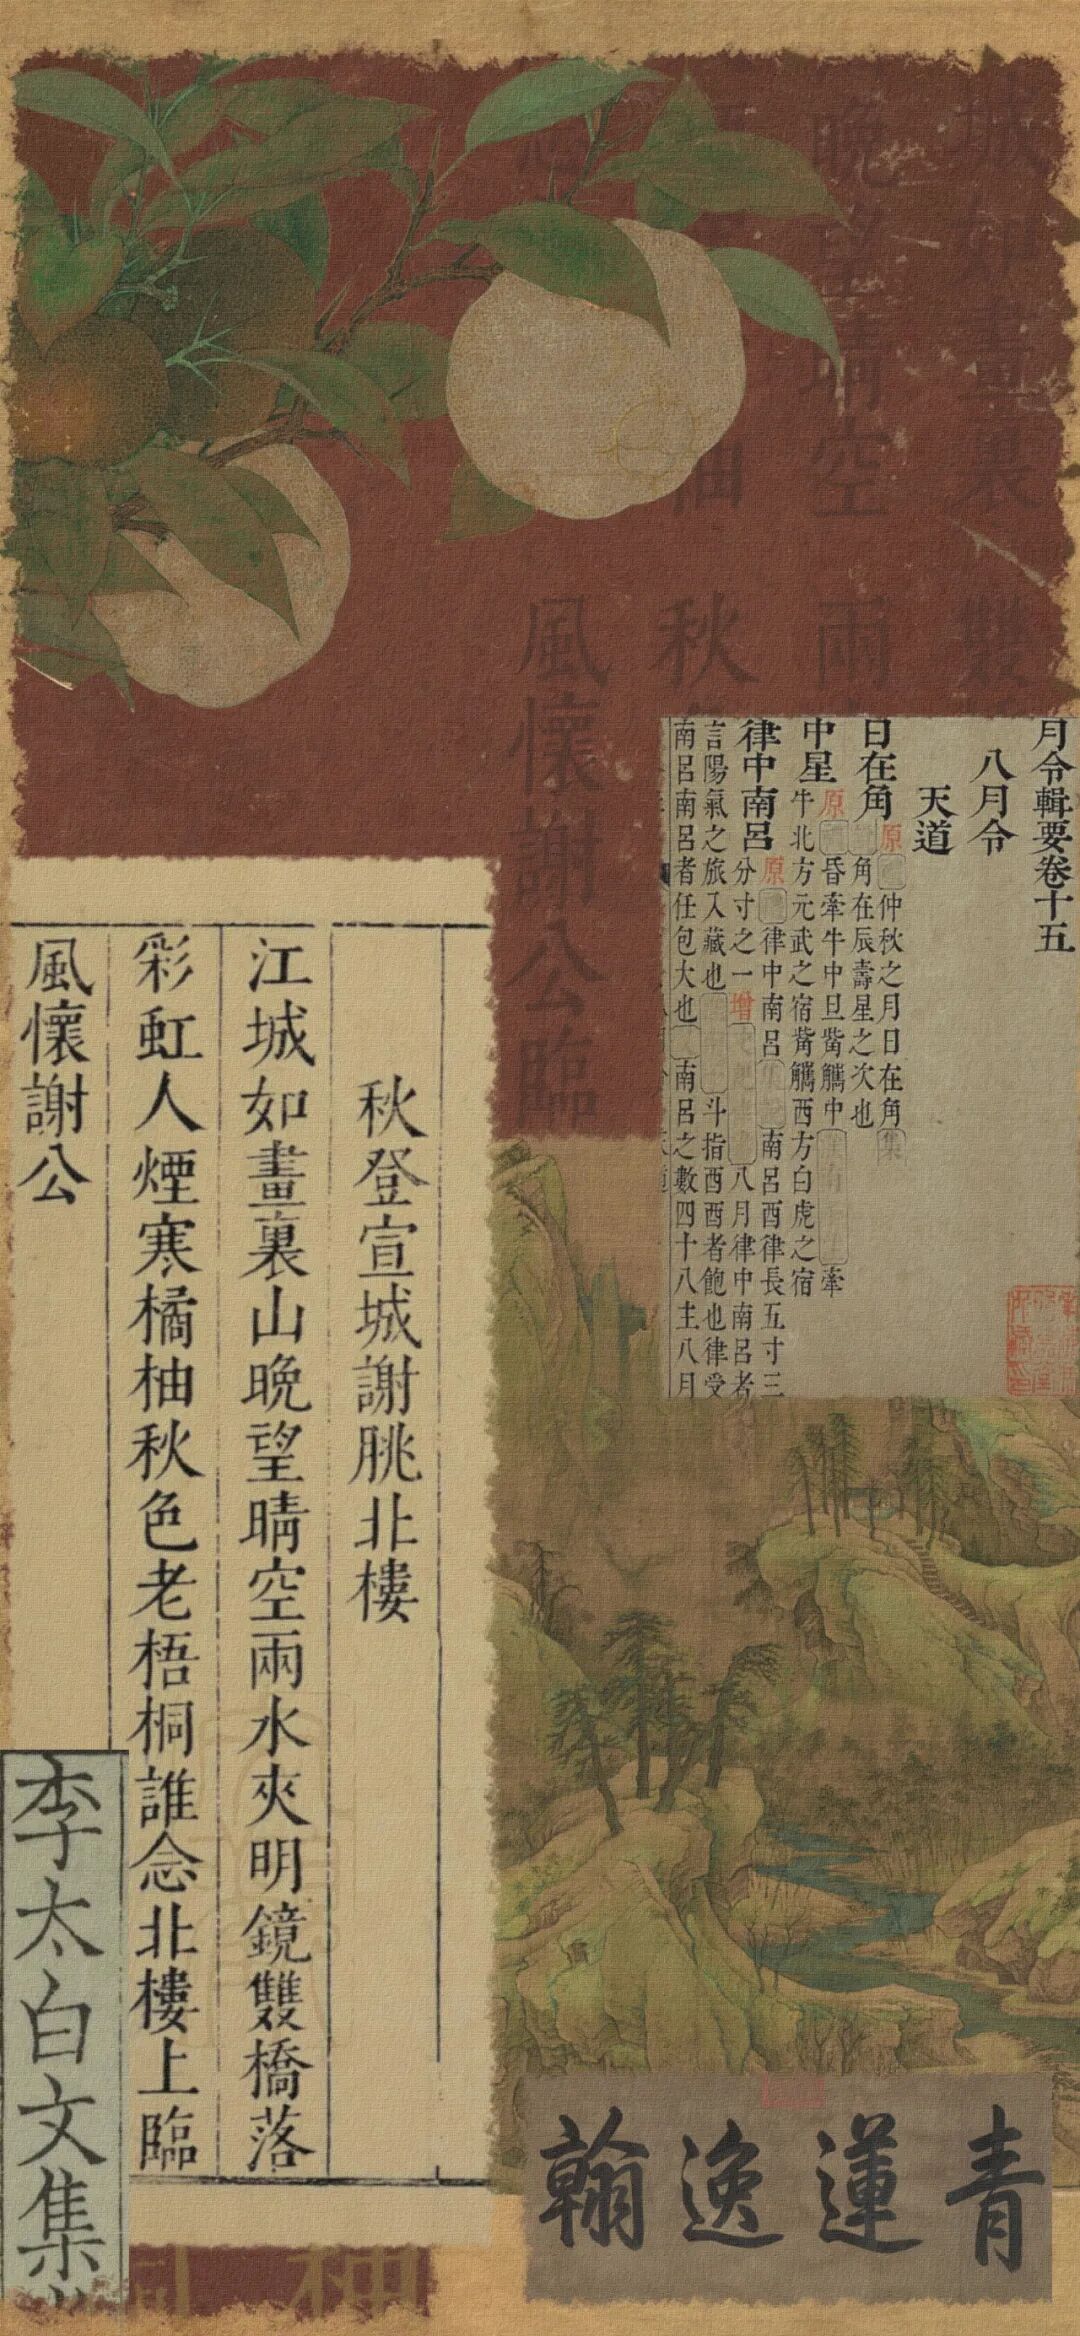 城如畫裏雙
晚望晴空雨
柚秋
風懷謝公臨
月令輯要卷十五
八月令
天道
日在角原仲秋之月日在角集
角在辰壽星之次也
中星原昏牽牛中旦觜觿中牽
牛北方元武之宿觜觿西方白虎之宿
律中南呂原律中南呂南呂酉律長五寸三
分寸之一增八月律中南呂者
言陽氣之旅入藏也斗指酉酉者飽也律受
南呂南呂者任包大也南呂之數四十八主八月
秋登宣城謝朓北樓
江城如畫裏山晚望晴空兩水夾明鏡雙橋落
彩虹人煙寒橘柚秋色老梧桐誰念北樓上臨
風懷謝公
李太白文集
青蓮逸翰